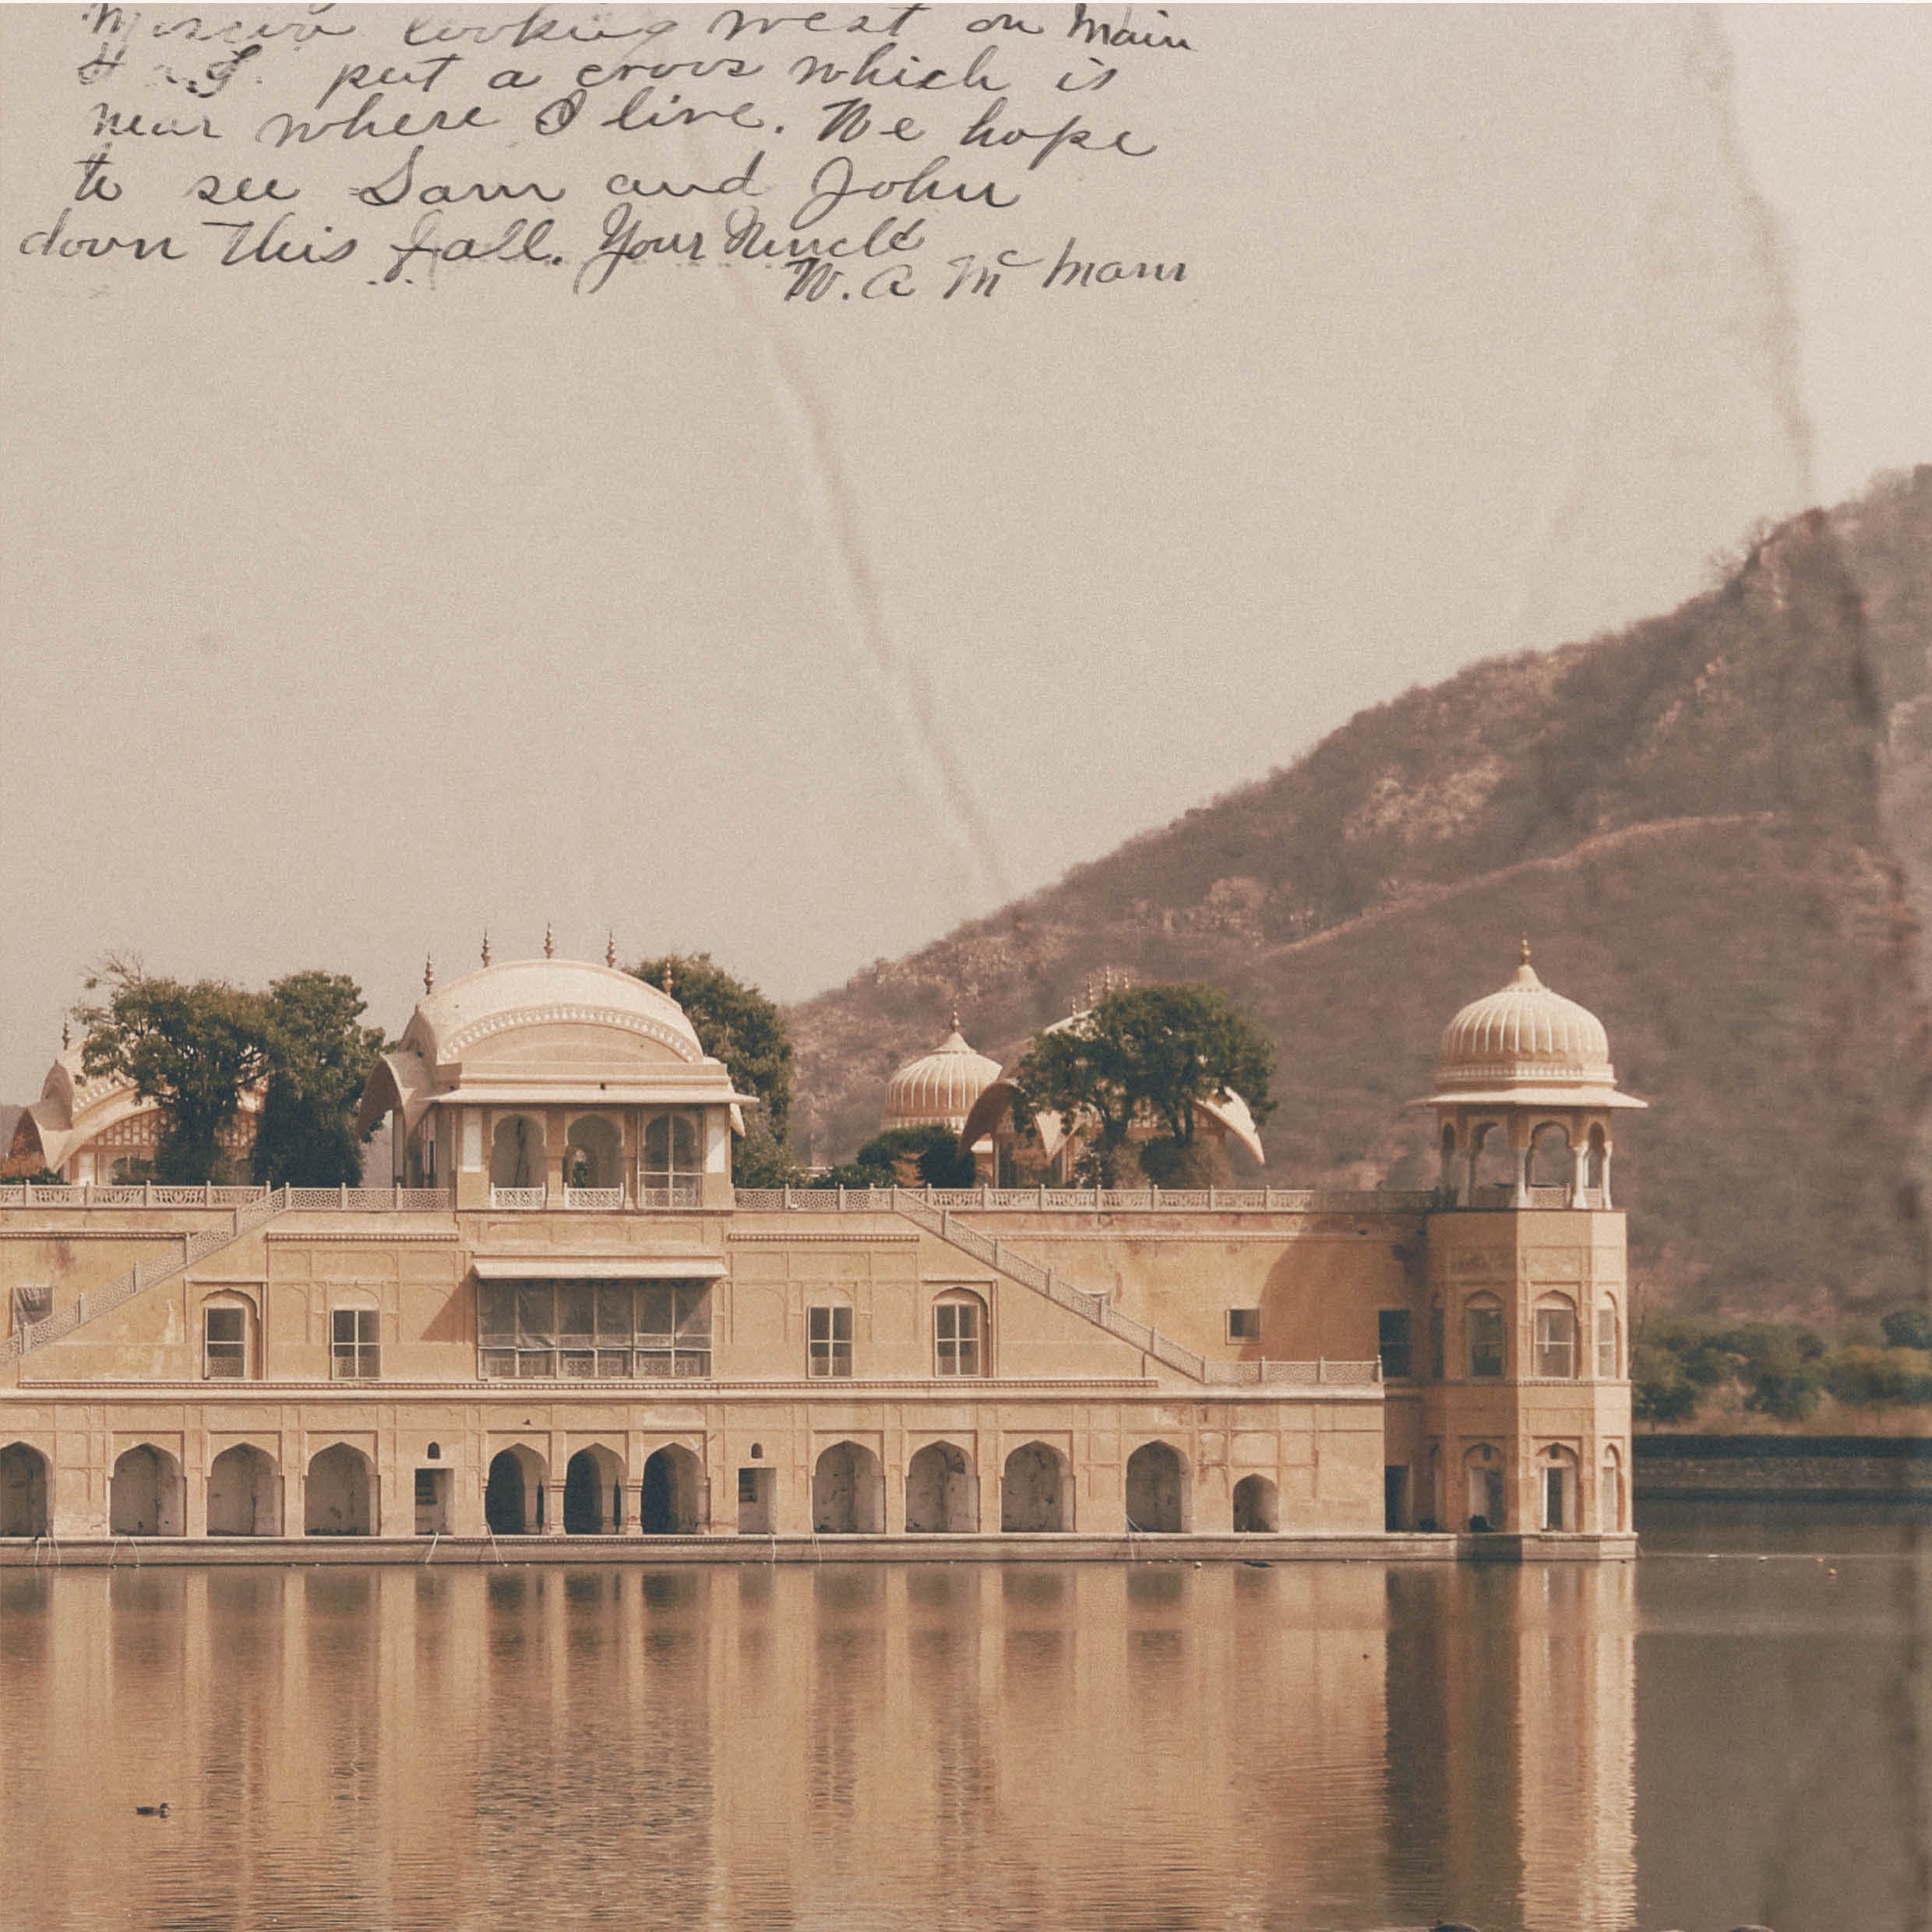 looking west on Main
put a cross which is
near where I live. We hope
to see Sam and John
down this fall. Your Uncle
W. A. Mc Mann